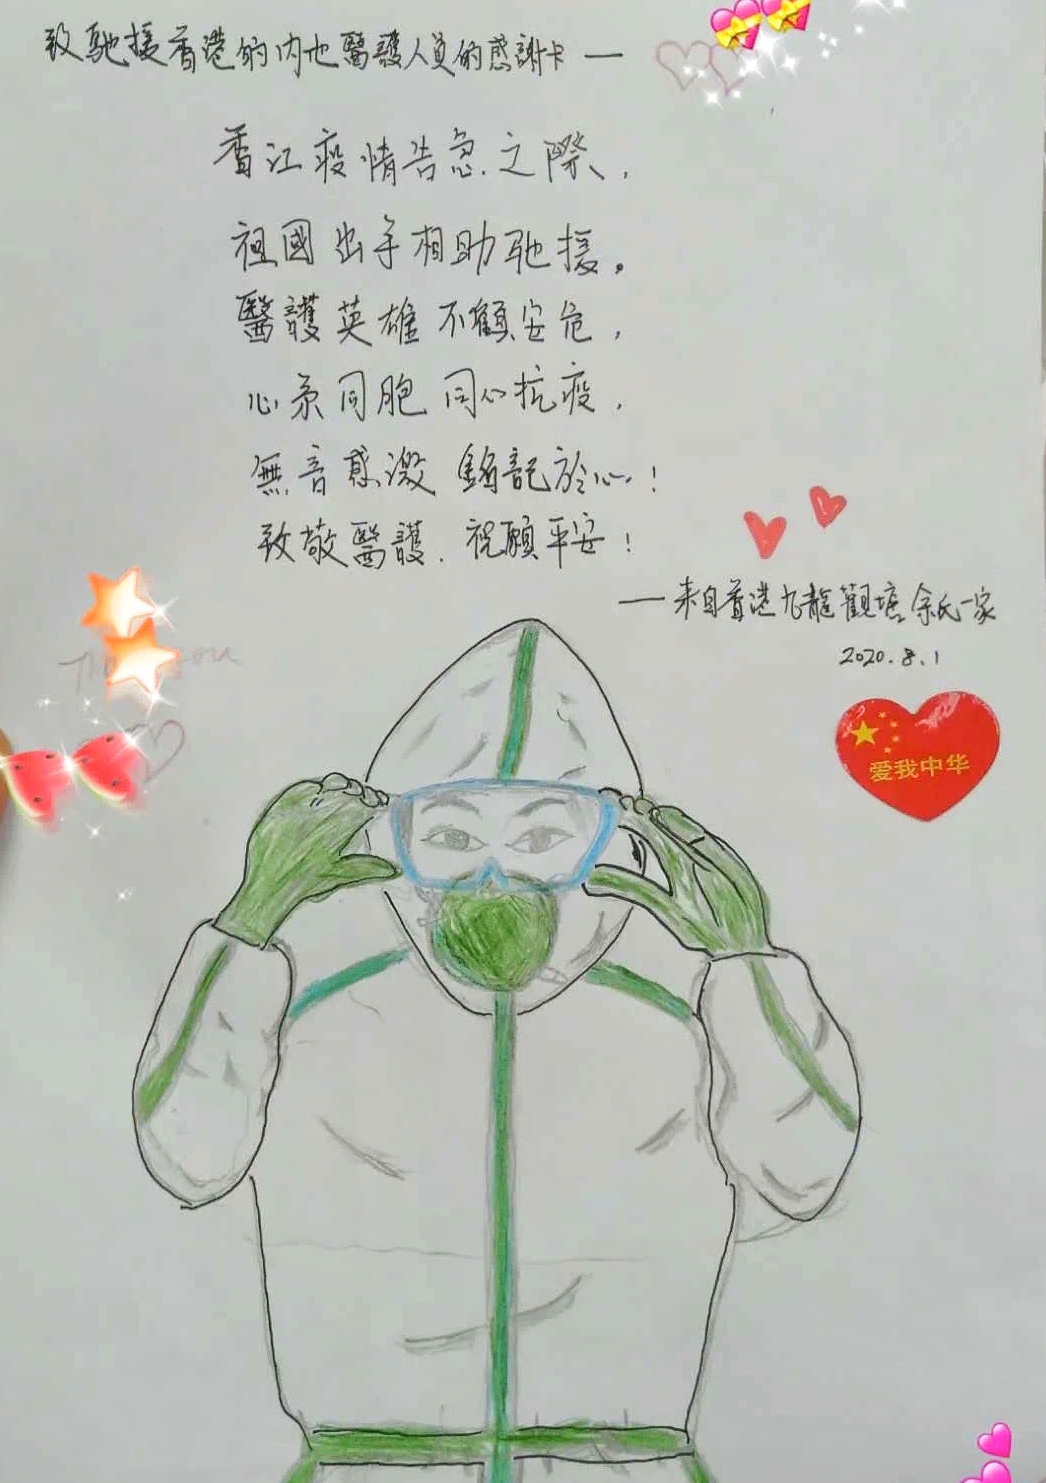 致馳援香港的内地醫護人員的感謝卡 —
香江疫情告急之際，
祖國出手相助馳援。
醫護英雄不顧安危，
心系同胞同心抗疫，
無音感激銘記於心！
致敬醫護，祝願平安！
—来自香港九龍觀塘余氏一家
2020.8.1
爱我中华